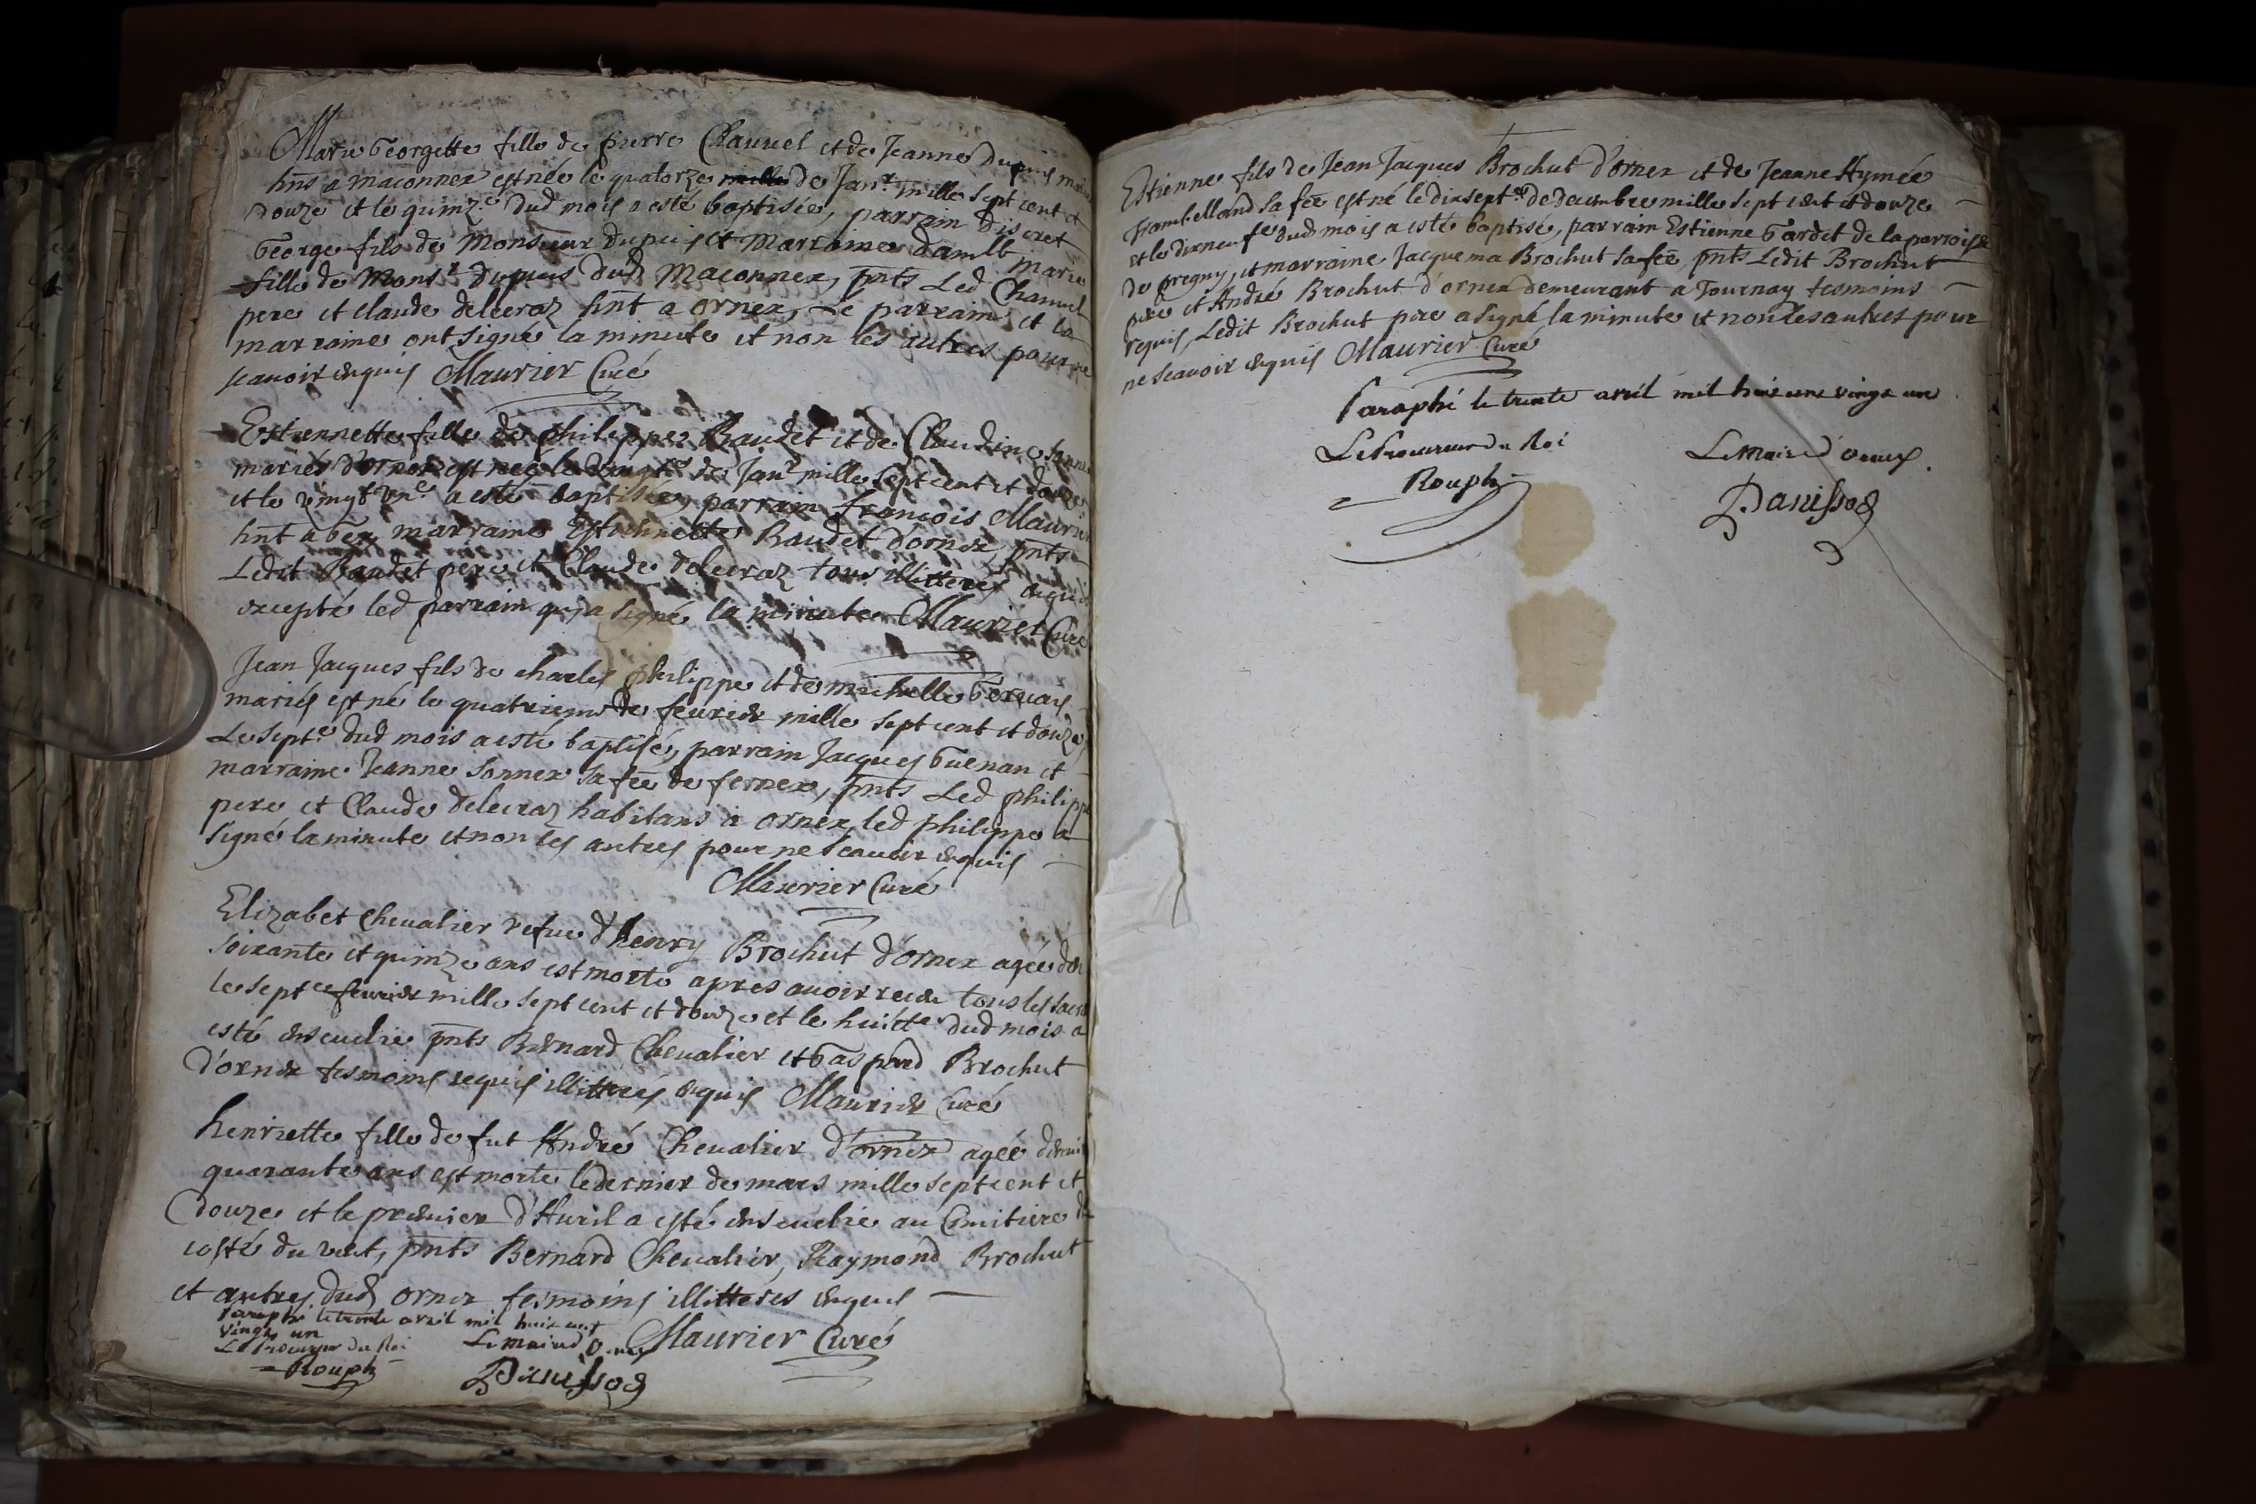 Marie Georgette fille de pierre Chauuel et de Jeanne Dupuis
hnts a maconnex est née le quatorze mille de Janr mille sept cent et
douze et le quinze dud mois a esté baptisée, parrain discret
George fils de Monsieur dupuis et Marraine damlle Marie
fille de Monsr dupuis dud Maconnex, pnts Led Chauuel
pere et claude delecraz hnt a ornex, Le parrain et la
marraine ont signé la minute et non les autres pour ne
scauoir enquis Maurier Curé
Estiennette fille de philippe Baudet et de Claudine
mariés d'ornex est née le vingte de Janr mille sept cent et douze
et le vingt vne a esté baptisée, parrain françois Maurier
hnt a Gex, marraine Estiennette Baudet d'ornex, pnts
Ledit Baudet pere et Claude delecraz tous illitterés enquis
excepté led parrain qui a signé la minute Maurier Curé
Jean Jacques fils de charles philippe et de michelle Geruais
mariés est né le quatrieme de feurier mille sept cent et douze
Le septe dud mois a esté baptisé, parrain Jacques Guenan et
marraine Jeanne Sonnex sa fee de fernex, pnts Led philippe
pere et Claude delecraz habitans a ornex, led philippe a
signé la minute et non les autres pour ne scauoir enquis
Maurier Curé
Elizabet Cheualier vefue d'henry Brochut d'ornex agée de
soixante et quinze ans est morte apres auoir receu tous les sacr
le septe feurier mille sept cent et douze et le huicte dud mois a
esté enseuelie pnts Bernard Cheualier et Gaspard Brochut
d'ornex tesmoins requis illitterés enquis Maurier Curé
henriette fille de fut André Cheualier d'ornex agée denui
quarante ans est morte le dernier de mars mille sept cent et
douze et le premier d'Auril a esté enseuelie au Cimitiere du
costé du vent, pnts Bernard Cheualier, Raymond Brochut
et autres dud ornex tesmoins illitterés enquis
Maurier Curé
Paraphé le trente avril mil huit cent
vingt un
Le Procureur du Roi
Le maire d'ornex
Rouph
Panissod
Estienne fils de Jean Jacques Brochut d'ornex et de Jeanne Aymée
frambelland sa fee est né le dixsepte de decembre mille sept cent et douze
et le dixneufe dud mois a esté baptisé, parrain Estienne Gardet de la parroisse
de pregny, et marraine Jacquema Brochut sa fee pnts Ledit Brochut
pere et André Brochut d'ornex demeurant a Tournay tesmoins
requis, Ledit Brochut pere a signé la minute et non les autres pour
ne scauoir enquis Maurier Curé
Paraphé le trente avril mil huit cent vingt un
Le Procureur du Roi
Le Maire d'ornex
Rouph
Panissod